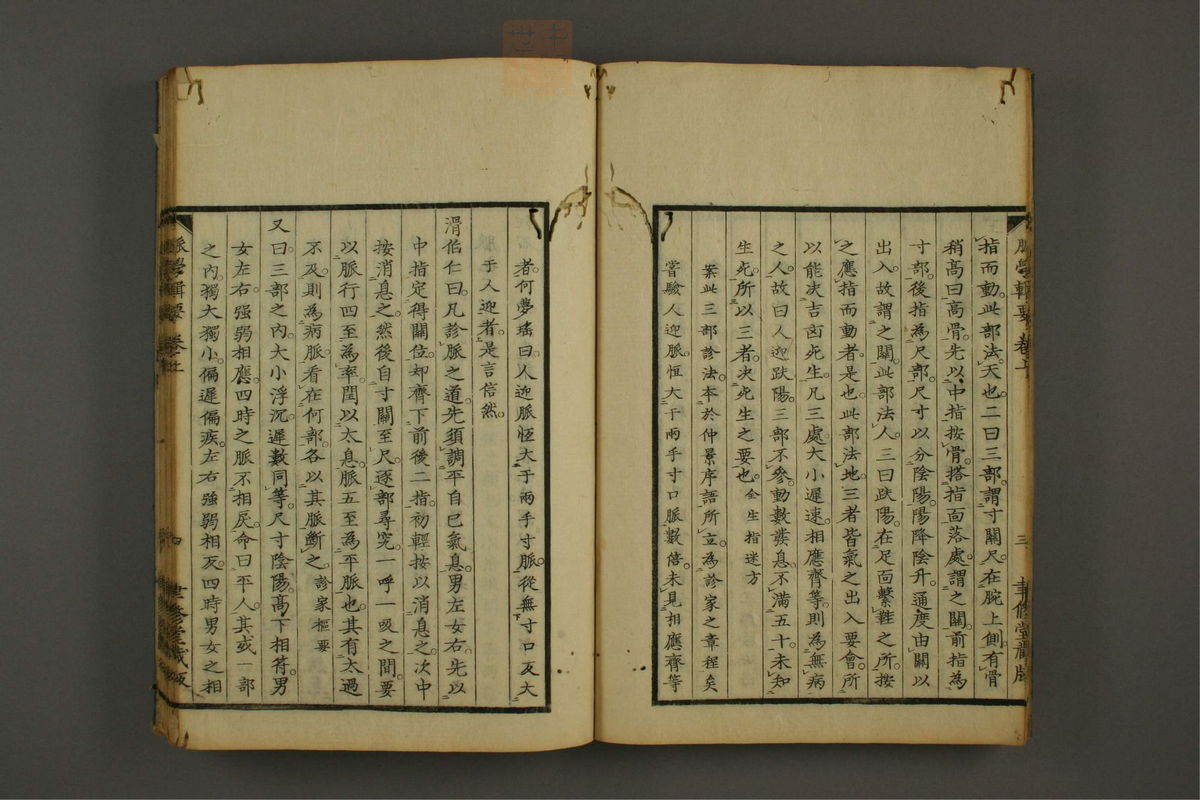 指而動此部法天也二曰三部謂寸關尺在腕上側有骨
稍高曰高骨先以中指按骨搭指面落處謂之關前指為
寸部後指為尺部尺寸以分陰陽陽降陰升通度由關以
出入故謂之關此部法人三曰趺陽在足面繫鞋之所按
之應指而動者是也此部法地三者皆氣之出入要會所
以能决吉凶死生凡三處大小遲速相應齊等則為無病
之人故曰人迎趺陽三部不參動數發息不滿五十未知
生死所以三者决死生之要也全生指迷方
案此三部診法本於仲景序語所立為診家之章程矣
嘗驗人迎脈恒大于兩手寸口脈數倍未見相應齊等
脈學輯要 卷上 三 聿修堂藏版
者何夢瑤曰人迎脈恒大于兩手寸脈從無寸口反大
于人迎者是言信然
滑伯仁曰凡診脈之道先須調平自己氣息男左女右先以
中指定得關位却齊下前後二指初輕按以消息之次中
按消息之然後自寸關至尺逐部尋究一呼一吸之間要
以脈行四至為率閏以太息脈五至為平脈也其有太過
不及則為病脈看在何部各以其脈斷之診家樞要
又曰三部之內大小浮沉遲數同等尺寸陰陽高下相符男
女左右强弱相應四時之脈不相戾命曰平人其或一部
之內獨大獨小偏遲偏疾左右强弱相反四時男女之相
脈學輯要 卷上 四 聿修堂藏版